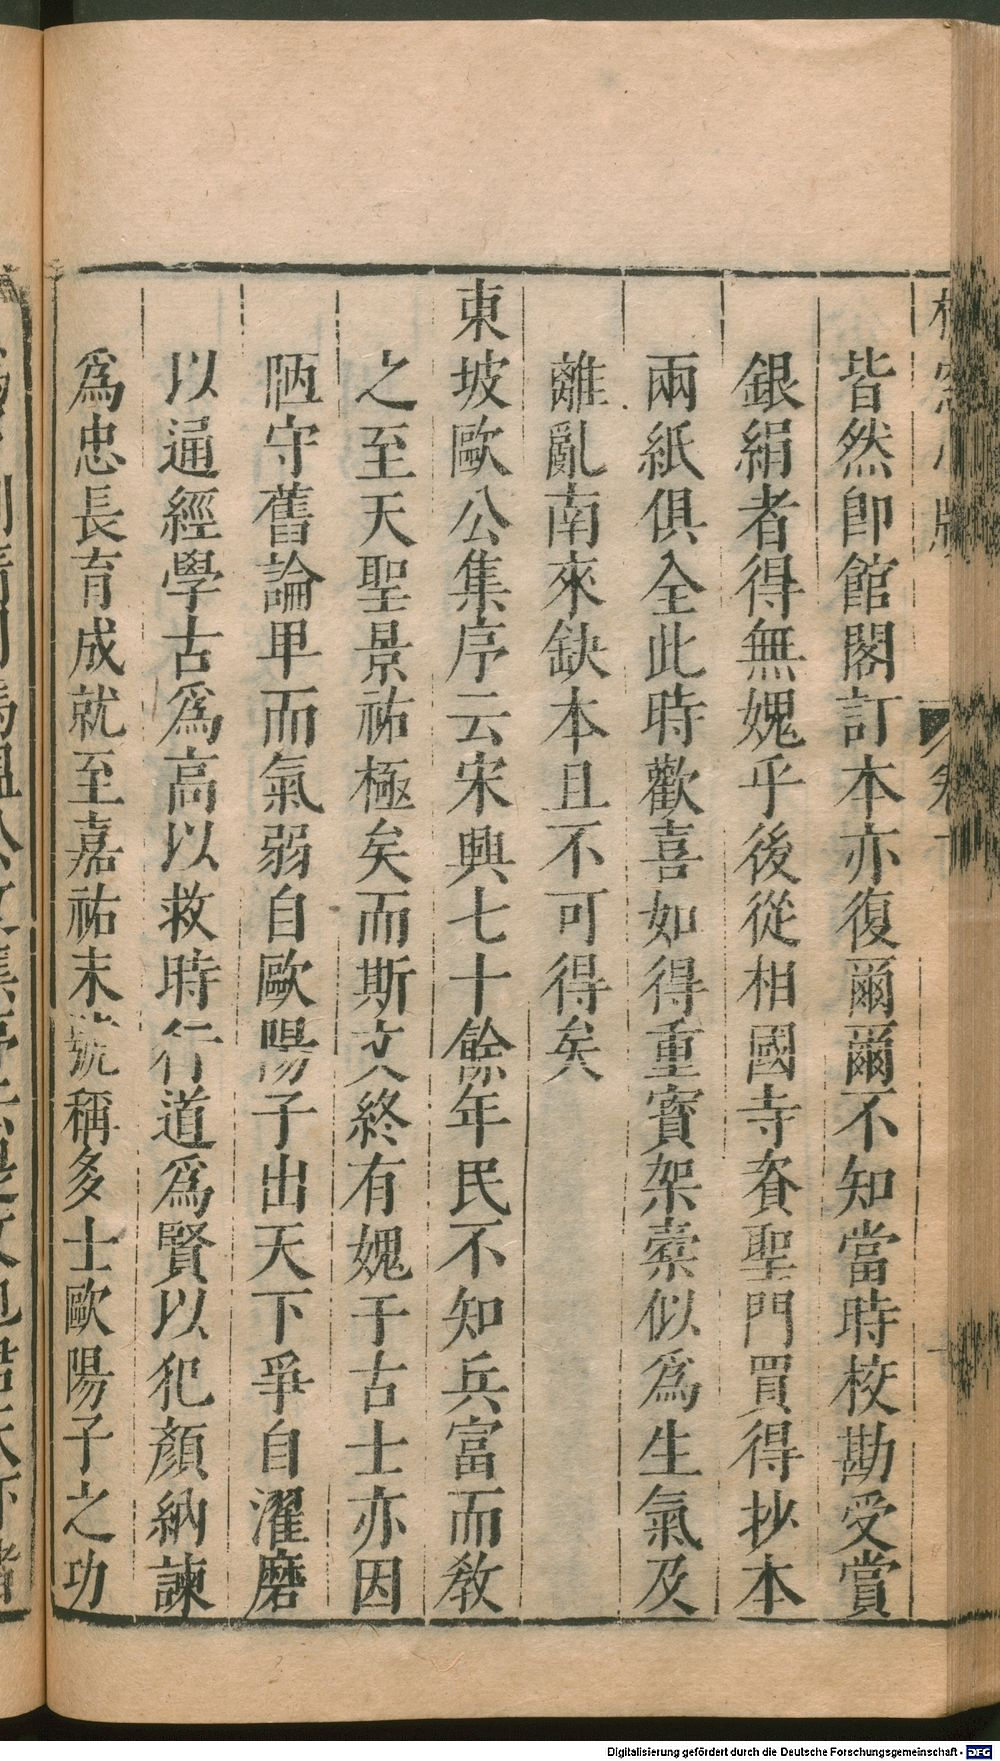 皆然卽館閣訂本亦復爾爾不知當時校勘受賞
銀絹者得無媿乎後從相國寺賚聖門買得抄本
兩紙俱全此時歡喜如得重寳架橐似爲生氣及
離亂南來缺本且不可得矣
東坡歐公集序云宋興七十餘年民不知兵富而敎
之至天聖景祐極矣而斯文終有媿于古士亦因
陋守舊論卑而氣弱自歐陽子出天下爭自濯磨
以通經學古爲高以救時行道爲賢以犯顏納諫
爲忠長育成就至嘉祐末號稱多士歐陽子之功
Digitalisierung gefördert durch die Deutsche Forschungsgemeinschaft - DFG